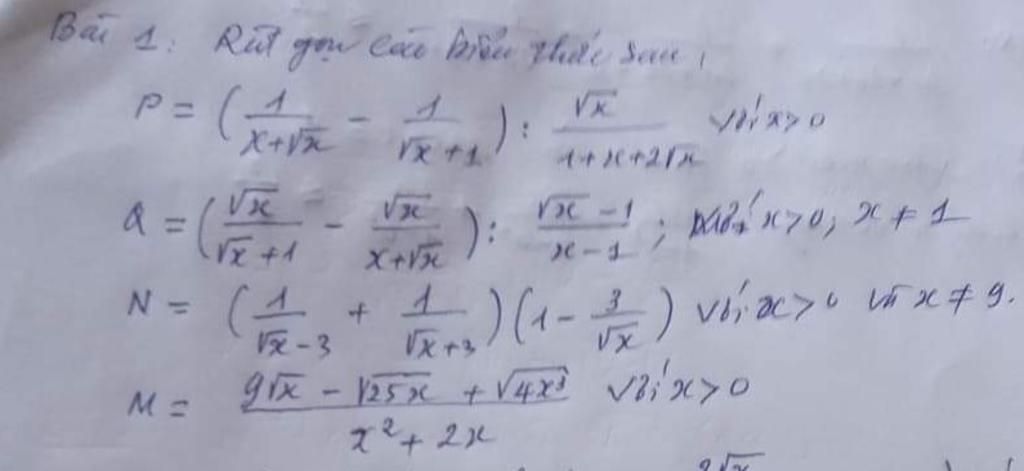 Bài 1: Rút gọn các biểu thức sau:
P = (1/(x+√x) - 1/(√x+1)) : √x/(1+x+2√x) với x>0
Q = (√x/(√x+1) - √x/(x+√x)) : (√x-1)/(x-1) ; với x>0, x≠1
N = (1/(√x-3) + 1/(√x+3))(1 - 3/√x) với x>0 và x≠9.
M = (9√x - √25x + √4x³)/(x²+2x) với x>0
2√x